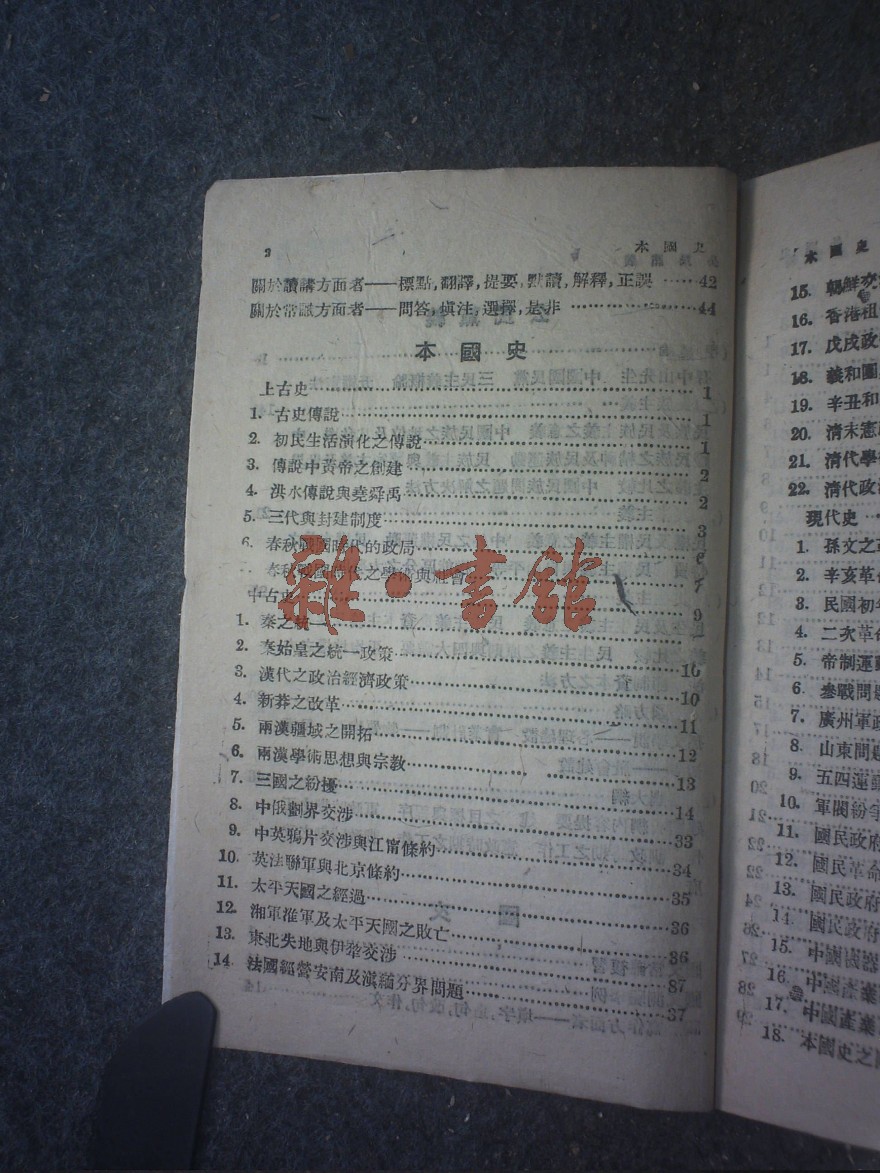 2 本國史
關於讀講方面者——標點,翻譯,提要,默讀,解釋,正誤……42
關於常識方面者——問答,填注,選擇,是非……44
本國史
上古史……1
1. 古史傳說……1
2. 初民生活演化之傳說……1
3. 傳說中黃帝之創建……2
4. 洪水傳說與堯舜禹……2
5. 三代與封建制度……3
6. 春秋戰國時代的政局……6
春秋戰國時代之學術與社會……7
中古史……9
1. 秦之統一……9
2. 秦始皇之統一政策……10
3. 漢代之政治經濟政策……10
4. 新莽之改革……11
5. 兩漢疆域之開拓……12
6. 兩漢學術思想與宗教……13
7. 三國之紛擾……14
8. 中俄劃界交涉……33
9. 中英鴉片交涉與江甯條約……34
10. 英法聯軍與北京條約……35
11. 太平天國之經過……36
12. 湘軍淮軍及太平天國之敗亡……36
13. 東北失地與伊犂交涉……37
14. 法國經營安南及滇緬分界問題……37
雜·書館
本國史
15. 朝鮮交
16. 香港租
17. 戊戌政
18. 義和團
19. 辛丑和
20. 清末憲
21. 清代學
22. 清代政
現代史
1. 孫文之革
2. 辛亥革
3. 民國初年
4. 二次革命
5. 帝制運動
6. 參戰問題
7. 廣州軍政
8. 山東問題
9. 五四運動
10. 軍閥紛爭
11. 國民政府
12. 國民革命
13. 國民政府
14. 國民政府
15. 中國國
16. 中國產業
17. 中國產業
18. 本國史之